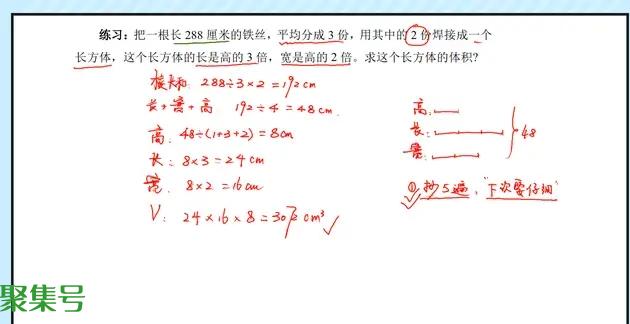 练习：把一根长 288 厘米的铁丝，平均分成 3 份，用其中的 2 份焊接成一个
长方体，这个长方体的长是高的 3 倍，宽是高的 2 倍。求这个长方体的体积？
棱长和: 288÷3×2=192cm
长+宽+高 192÷4=48cm.
高: 48÷(1+3+2)=8cm
长: 8×3=24cm
宽: 8×2=16cm
V: 24×16×8=3072cm³
高:
长:
宽:
48
①抄5遍，"下次要仔细"
聚集号